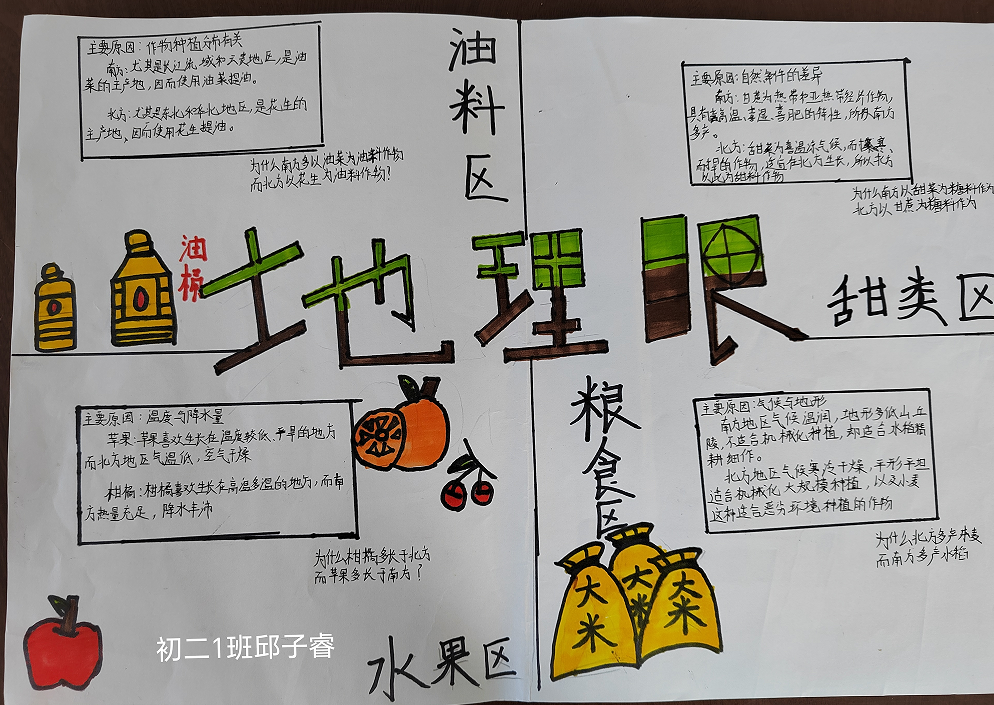 主要原因：作物种植分布有关
南方：尤其是长江流域和云贵地区，是油
菜的主产地，因而使用油菜提油。
北方：尤其是东北和华北地区，是花生的
主产地，因而使用花生提油。
为什么南方多以油菜为油料作物
而北方以花生为油料作物？
油料区
主要原因：自然条件的差异
南方：甘蔗为热带和亚热带经济作物，
具有喜高温、喜湿、喜肥的特性，所以南方
多产。
北方：甜菜为喜温凉气候，而耐寒、
耐旱的作物，适宜在北方生长，所以北方
以此为甜料作物
为什么南方以甜菜为糖料作为
北方以甘蔗为糖料作为
甜类区
油桶
地理眼
主要原因：温度与降水量
苹果：苹果喜欢生长在温度较低、干旱的地方
而北方地区气温低，空气干燥
柑橘：柑橘喜欢生长在高温多湿的地方，而南
方热量充足，降水丰沛
为什么柑橘多长于北方
而苹果多长于南方？
初二1班邱子睿
水果区
粮食区
主要原因：气候与地形
南方地区气候温润，地形多低山丘
陵，不适合机械化种植，却适合水稻精
耕细作。
北方地区气候寒冷干燥，平形平坦
适合机械化大规模种植，以及小麦
这种适合恶劣环境种植的作物
为什么北方多产小麦
而南方多产水稻
大米
大米
大米